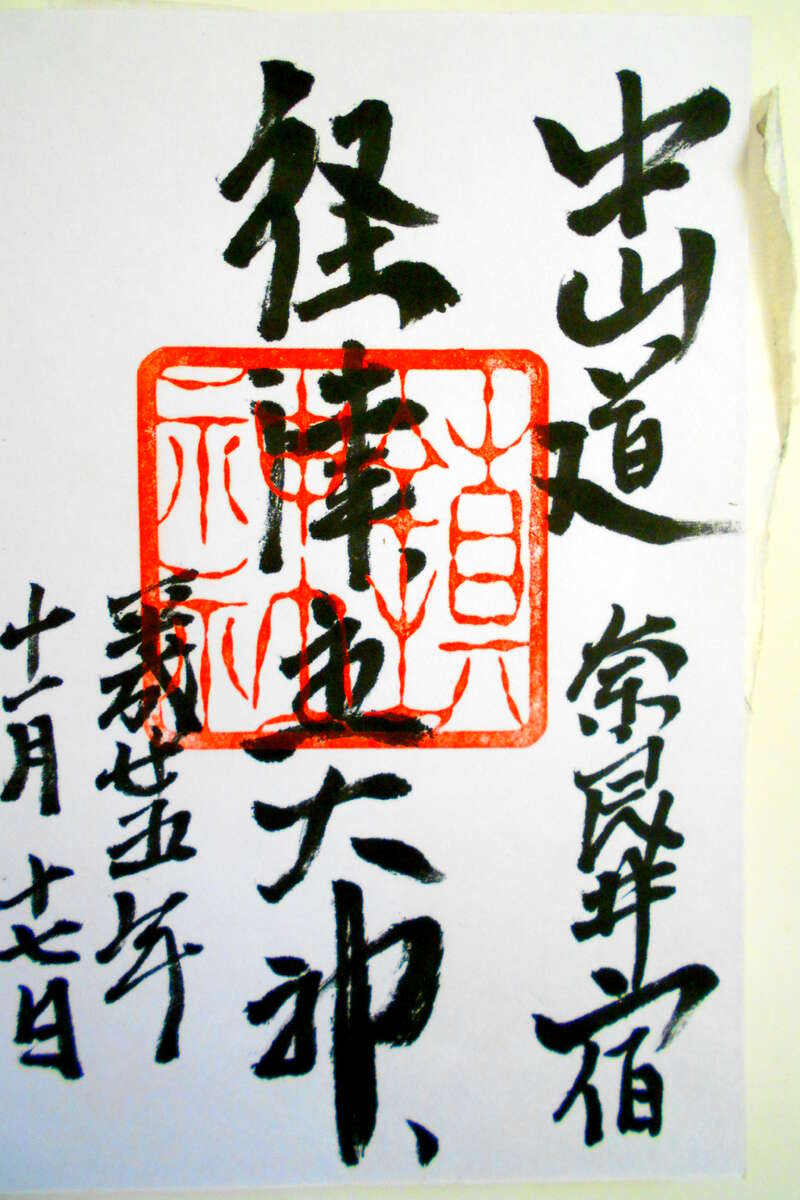 中山道 奈良井宿
経津主大神
平成廿五年
十一月 十七日
鎮神社